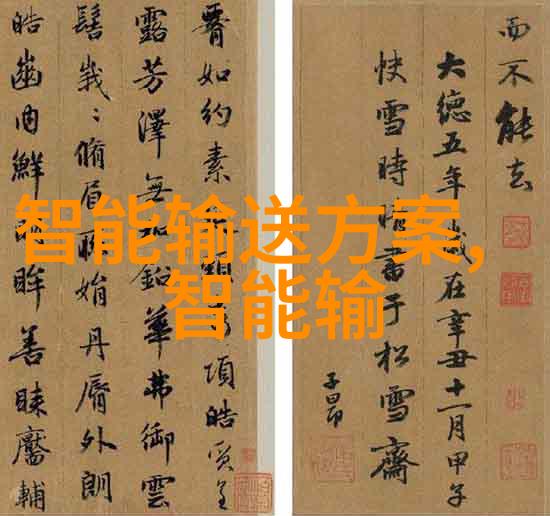 智能输送方案,
智能输
如約素項皓質呈
露芳澤無鉛華弗御雲
髻峩〻脩眉聯娟丹脣外朗
皓齒內鮮眸善睞靨輔
而不能去
大德五年歲在辛丑十一月甲子
快雪時晴書于松雪齋
子昂